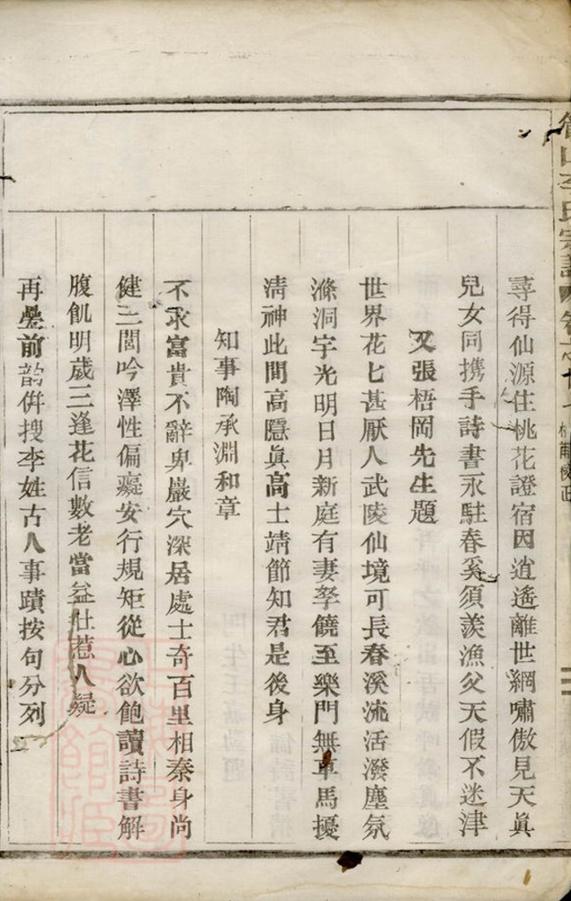 尋得仙源住桃花證宿因逍遙離世網嘯傲見天眞
兒女同携手詩書永駐春奚須羨漁父天假不迷津
又張梧岡先生題
世界花七甚厭人武陵仙境可長春溪流活潑塵氛
滌洞宇光明日月新庭有妻孥饒至樂門無車馬擾
淸神此間高隱眞高士靖節知君是後身
知事陶承淵和章
不求富貴不辭卑巖穴深居處士奇百里相秦身尚
健三閭吟澤性偏癡安行規矩從心欲飽讀詩書解
腹飢明歲三逢花信數老當益壯惹人疑
再疊前韵倂搜李姓古人事蹟按句分列
李氏宗譜